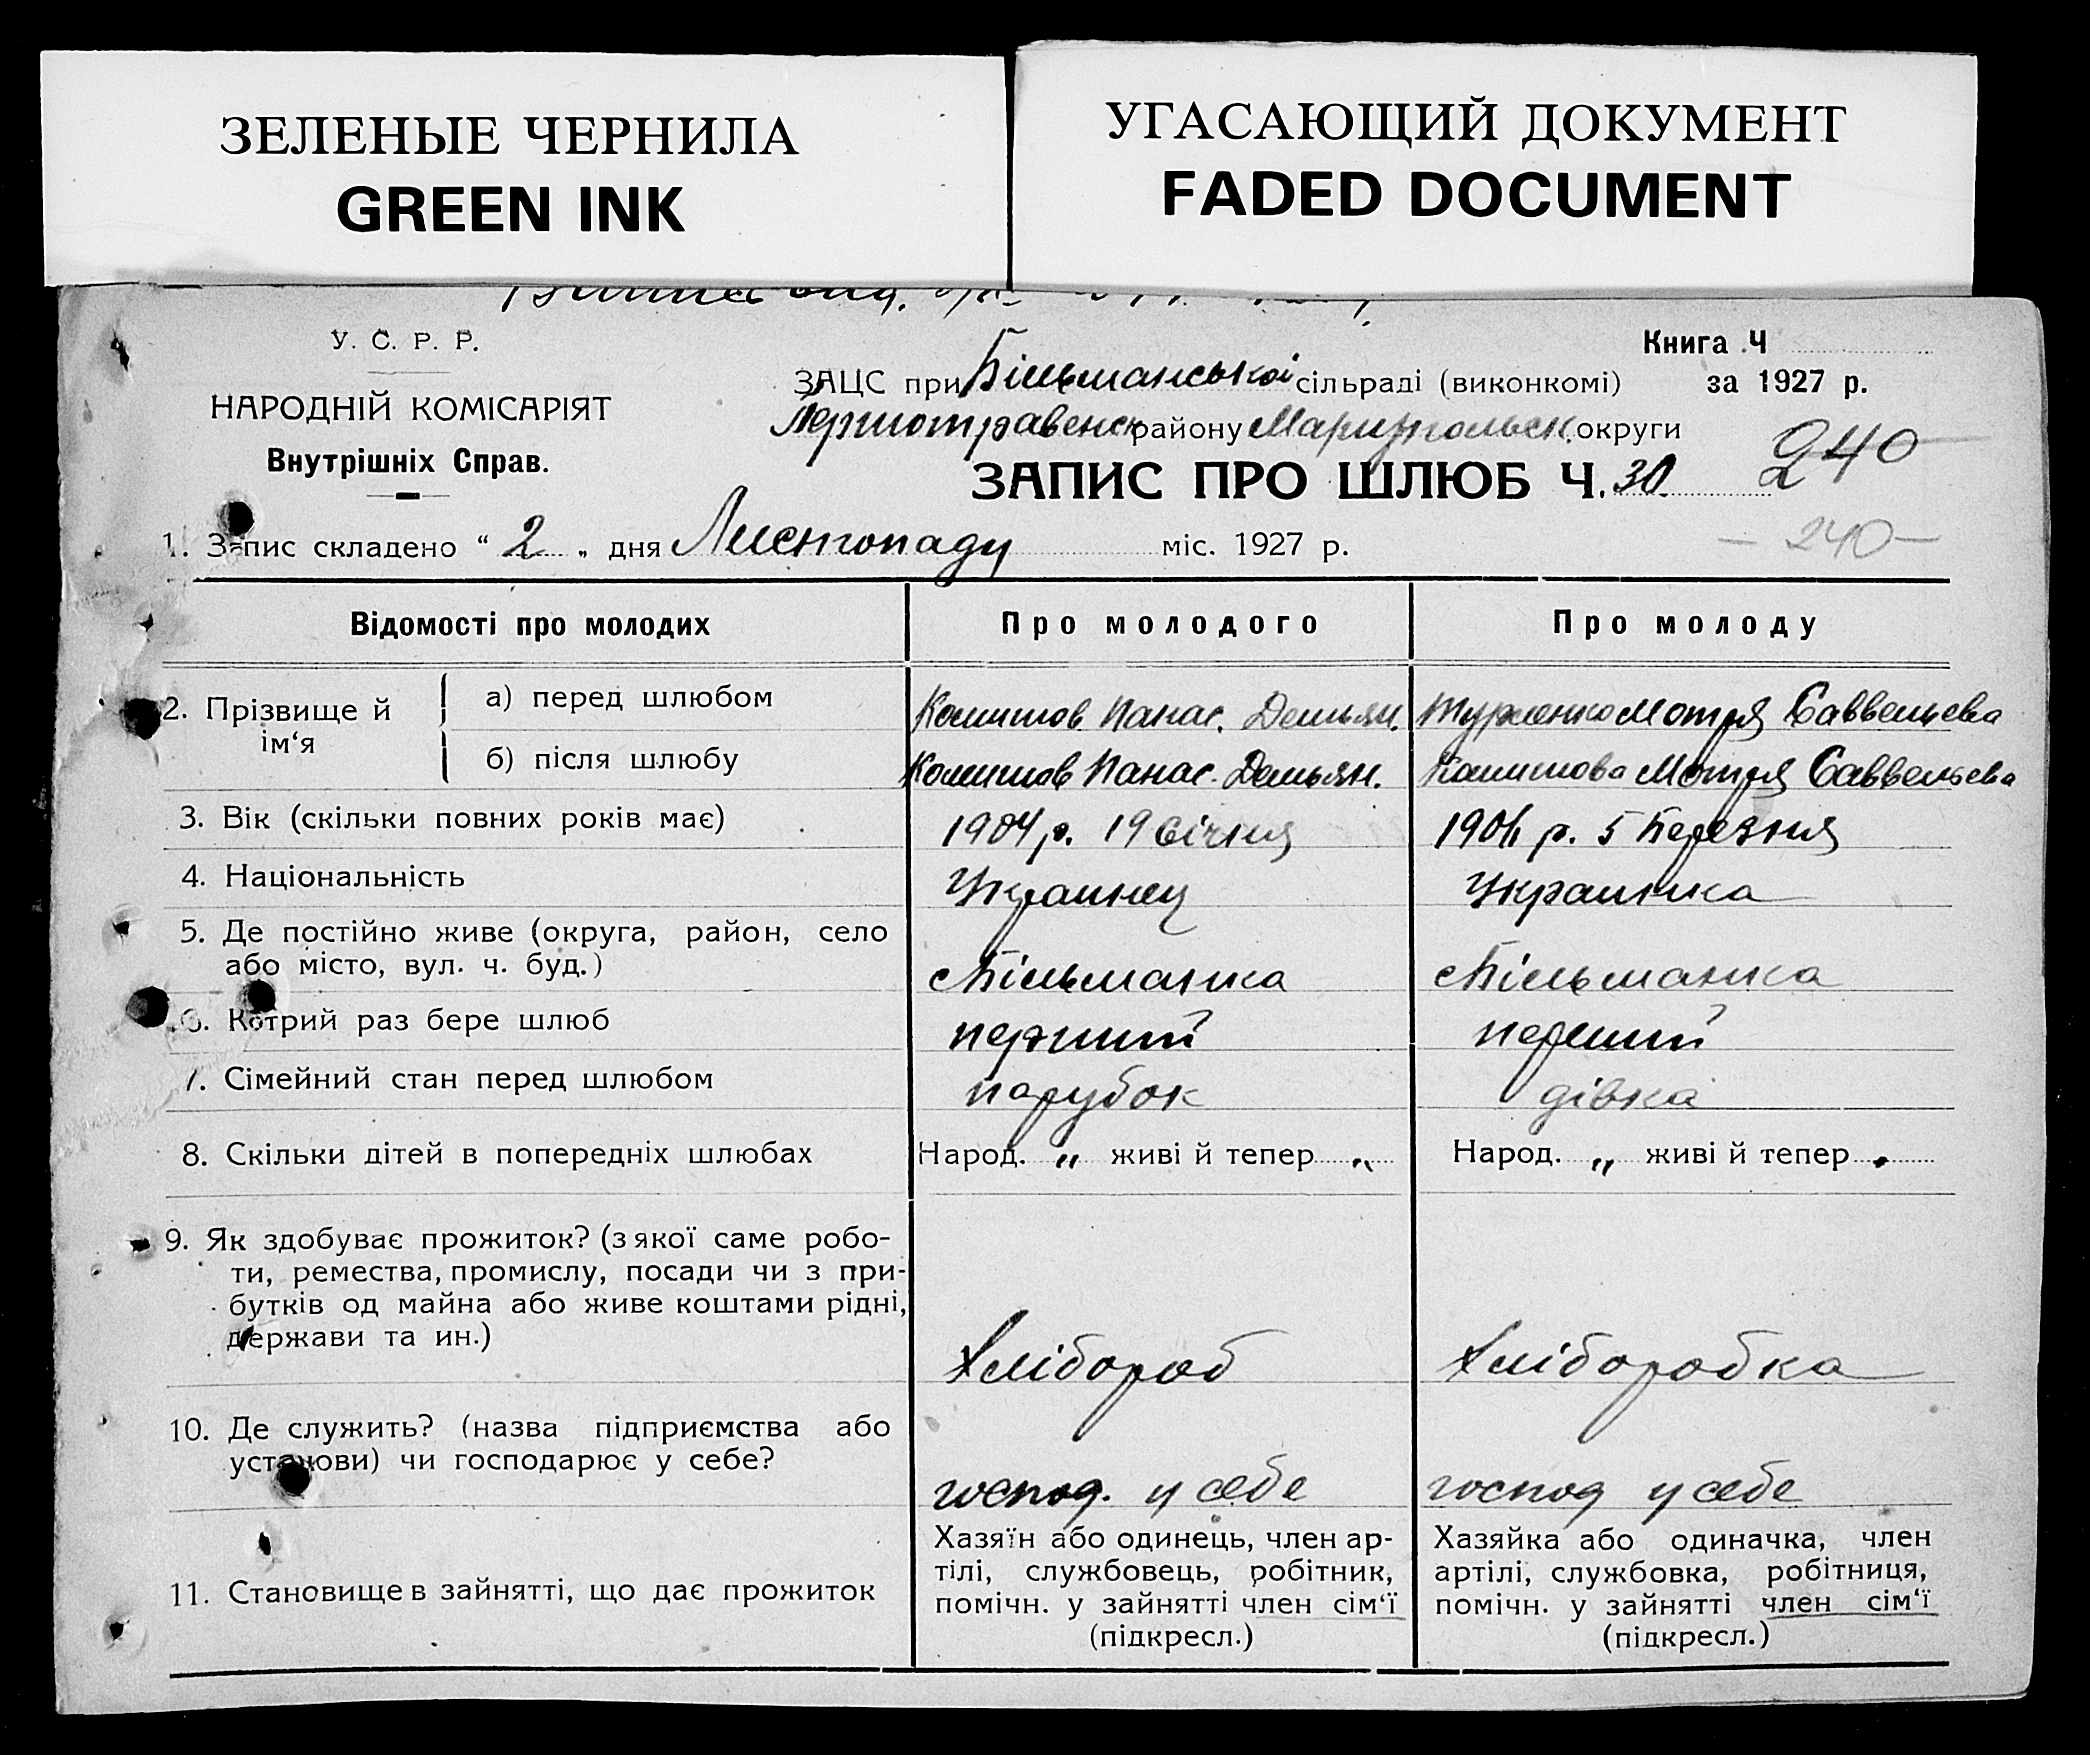 ЗЕЛЕНЫЕ ЧЕРНИЛА
GREEN INK
УГАСАЮЩИЙ ДОКУМЕНТ
FADED DOCUMENT
У. С. Р. Р.
НАРОДНІЙ КОМІСАРІЯТ
Внутрішніх Справ.
Книга Ч
ЗАЦС при Більманській сільраді (виконкомі) за 1927 р.
району Маріупольськ. округи
ЗАПИС ПРО ШЛЮБ Ч. 30. 240
1. Запис складено “ 2 „ дня Листопаду міс. 1927 р. — 240 —
Відомості про молодих Про молодого Про молоду
2. Прізвище й ім‘я
а) перед шлюбом Панас. Демьян. Мотря Саввельева
б) після шлюбу Панас. Демьян. Мотря Саввельева
3. Вік (скільки повних років має) 1904 р. 19 Січня р. 5 Березня
4. Національність Украинец Украинка
5. Де постійно живе (округа, район, село
або місто, вул. ч. буд.)
с Більманка с Більманка
6. Котрий раз бере шлюб перший перший
7. Сімейний стан перед шлюбом парубок дівка
8. Скільки дітей в попередніх шлюбах Народ. „ живі й тепер „ Народ. „ живі й тепер „
9. Як здобуває прожиток? (з якої саме робо-
ти, ремества, промислу, посади чи з при-
бутків од майна або живе коштами рідні,
держави та ин.)
Хлібороб Хліборобка
10. Де служить? (назва підприємства або
установи) чи господарює у себе?
господ. у себе господ у себе
11. Становище в зайнятті, що дає прожиток
Хазяїн або одинець, член ар-
тілі, службовець, робітник,
помічн. у зайнятті член сім‘ї
(підкресл.)
Хазяйка або одиначка, член
артілі, службовка, робітниця,
помічн. у зайнятті член сім‘ї
(підкресл.)